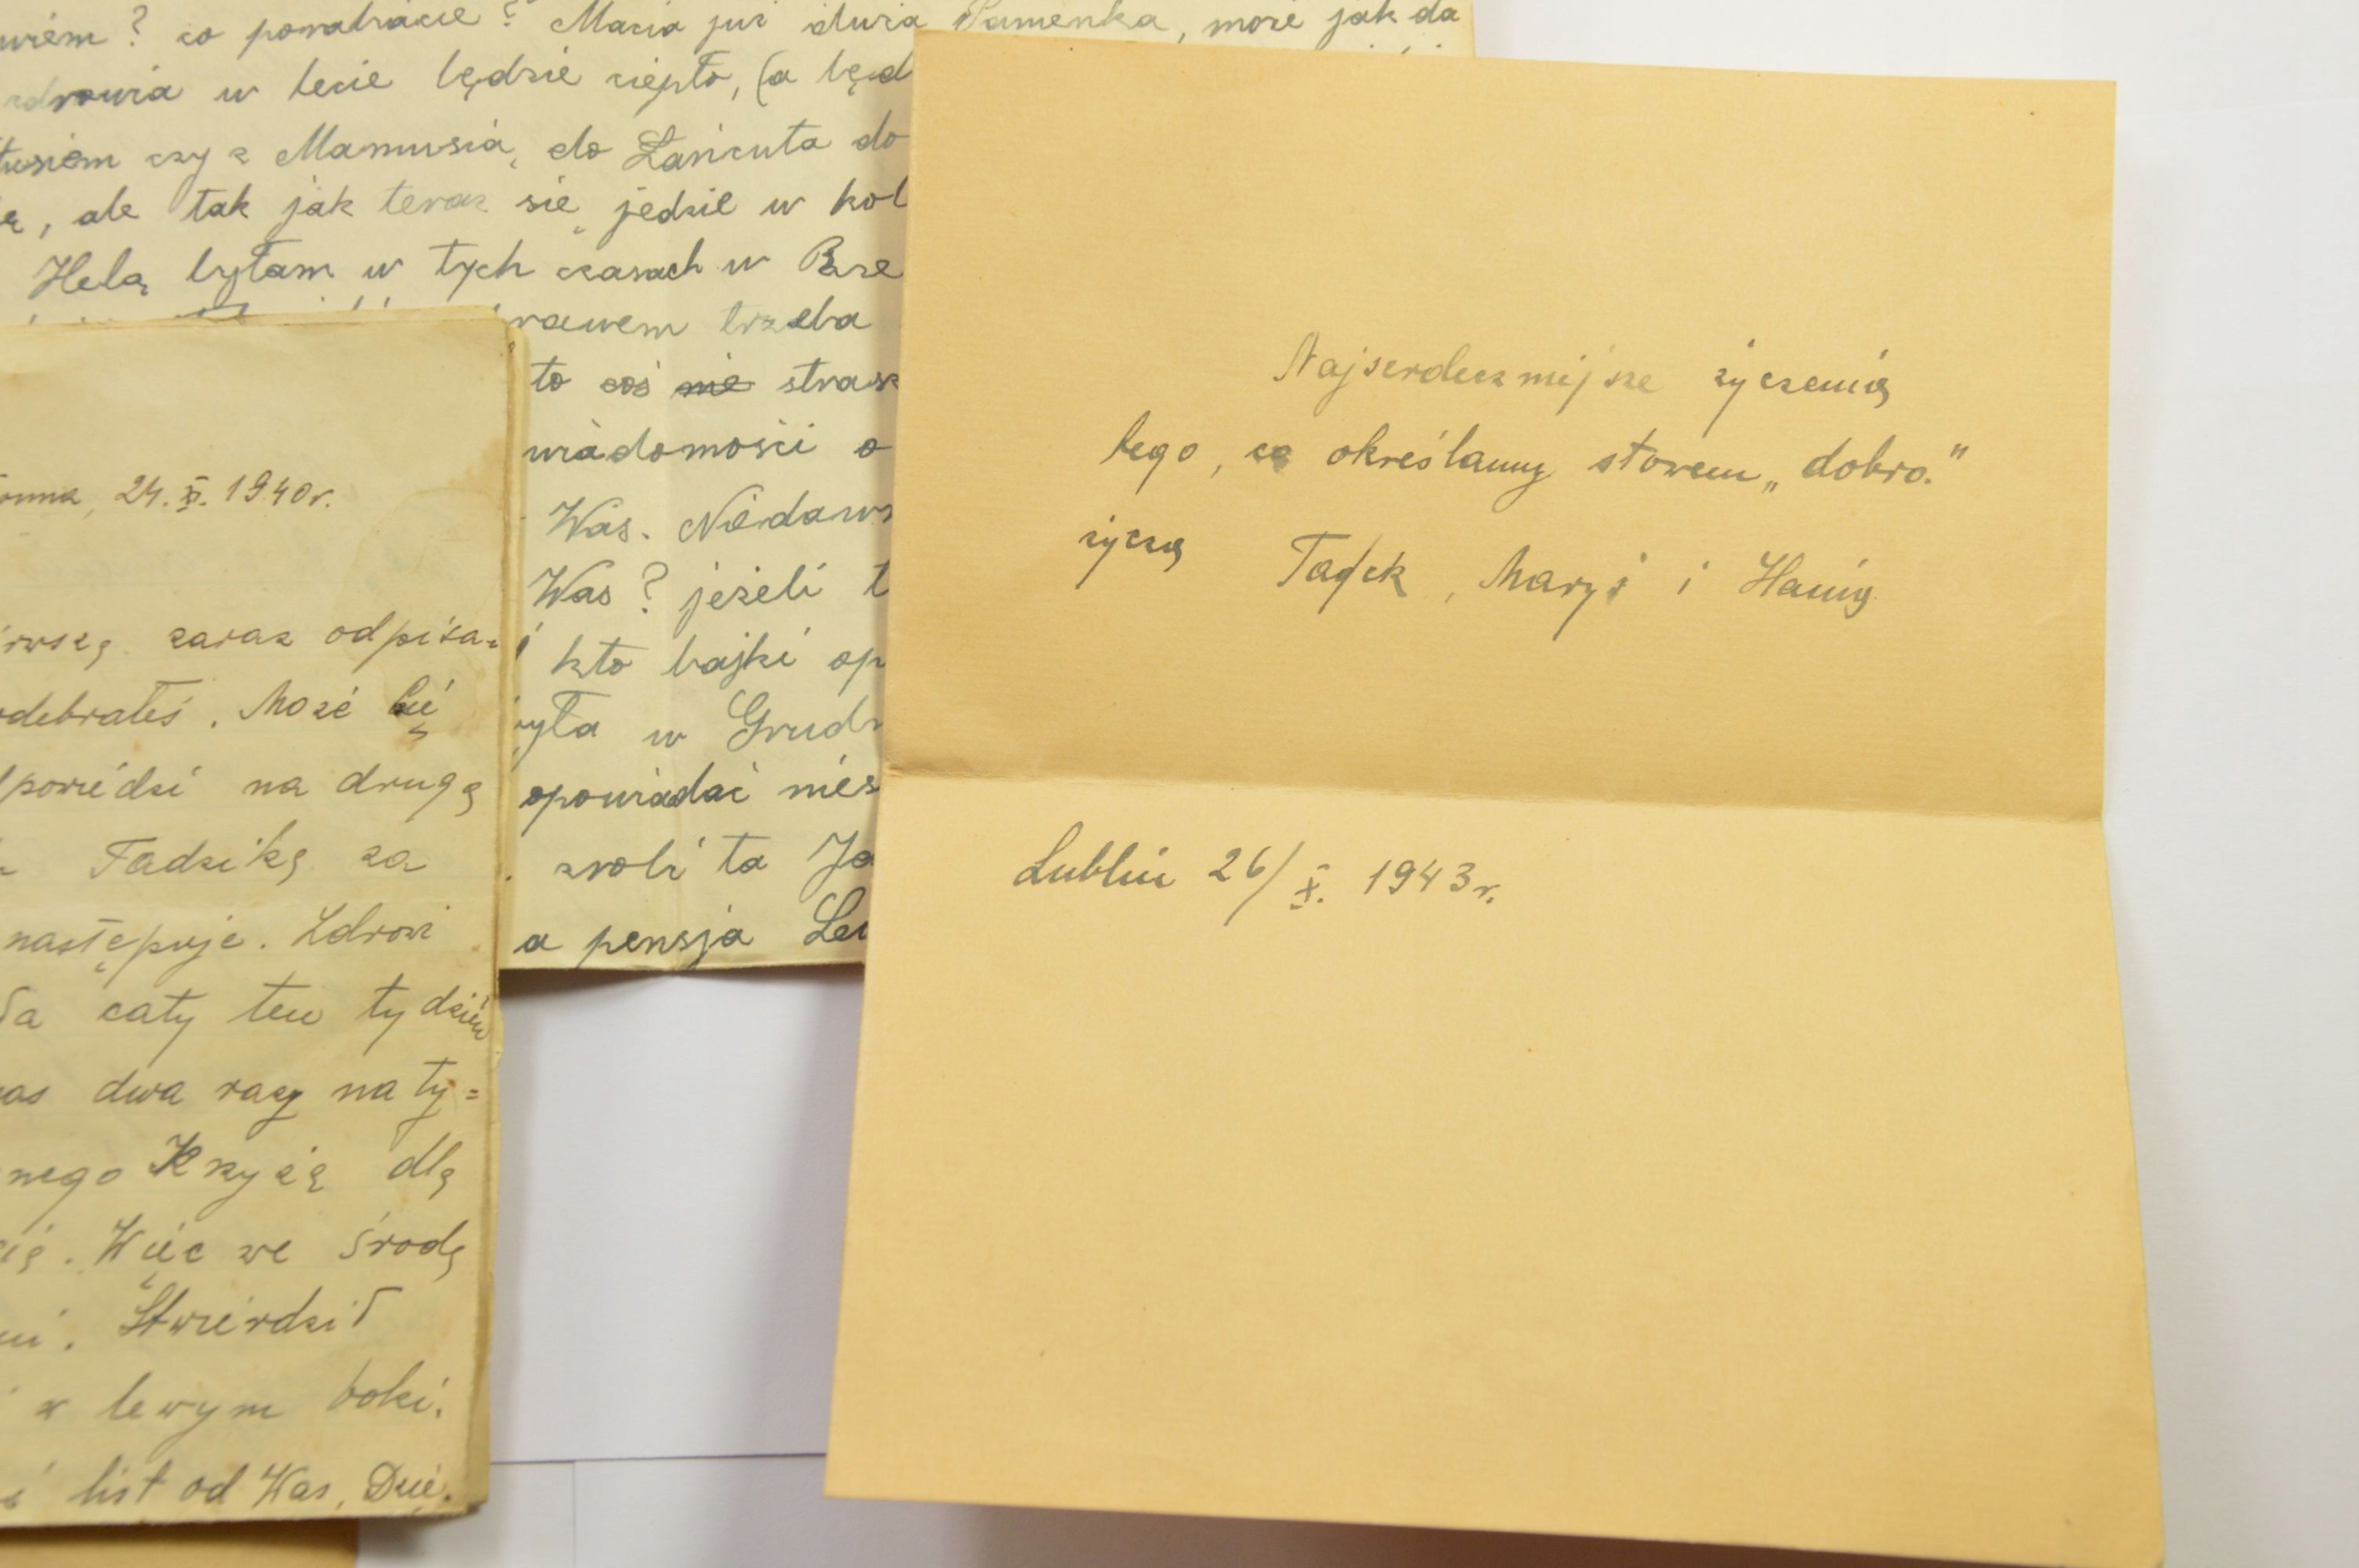 wiem? co porabiacie? Macia już duża Panienka, może jak da
zdrowia w lecie będzie ciepło, (a będ
tusiem czy z Mamusią do Łańcuta do
ale tak jak teraz się jedzie w kol
Helą byłam w tych czasach w Prze
trzeba
to coś nie strasz
wiadomości o
Was. Niedawn
Was? jeżeli t
kto bajki op
była w Grudz
opowiadać nies
zwoli ta Ja
a pensja Le
24. X. 1940r.
zaraz odpisa-
odebrałeś. Może Cię
powiedzi na drugą
Tadzika za
następuje. Zdrowi
cały ten tydzień
dwa razy na ty=
nego Krzyża dla
Więc we środę
Stwierdził
w lewym boku.
list od Was,
Najserdeczniejsze życzenia
tego, co określamy słowem „dobro."
życzą Tadek, Maryś i Hania
Lublin 26/X. 1943r.